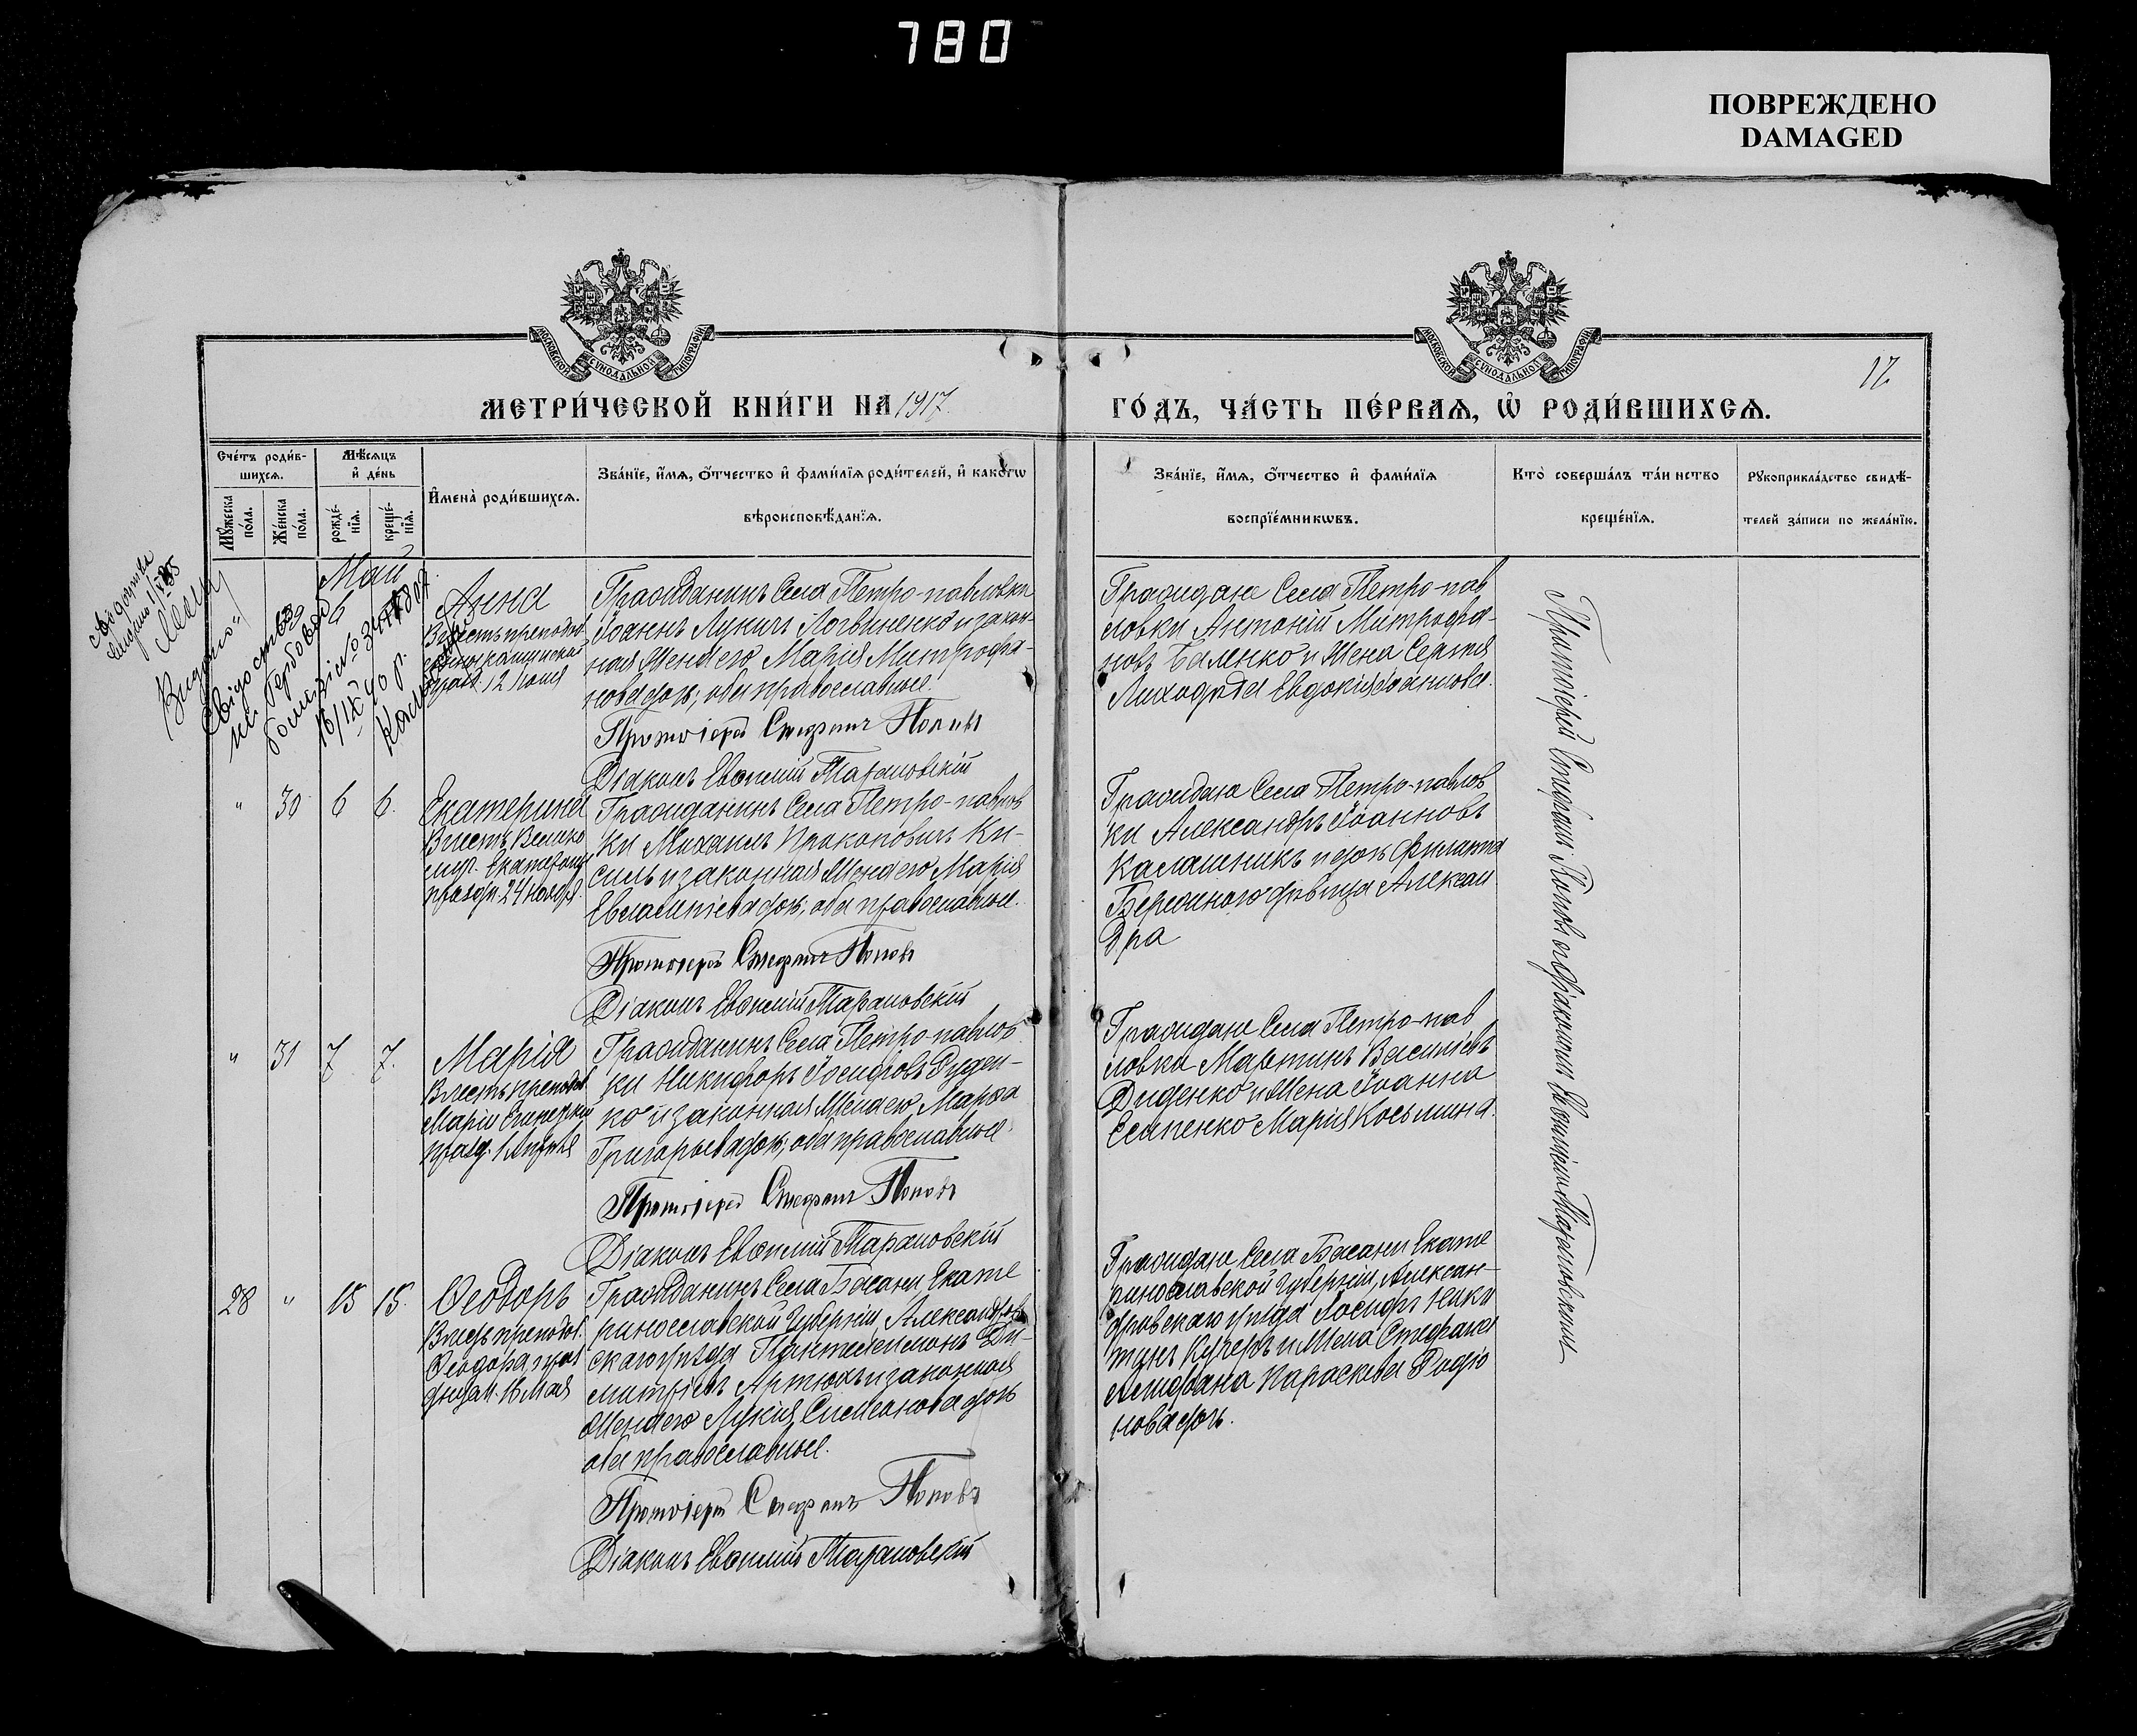 780
ПОВРЕЖДЕНО
DAMAGED
МОСКОВСКОЙ СУНОДАЛЬНОЙ ТИПОГРАФІИ
МОСКОВСКОЙ СУНОДАЛЬНОЙ ТИПОГРАФІИ
12
МЕТРИ́ЧЕСКОЙ КНИ́ГИ НА 1917
ГО́ДЪ, ЧА́СТЬ ПЕ́РВАѦ, Ѽ РОДИ́ВШИХСѦ.
Сче́тъ роди́в-
шихсѧ.
Мꙋ́жеска
по́ла.
Же́нска
по́ла.
Мѣ́сѧцъ
и҆ де́нь
рожде́-
нїѧ.
креще́-
нїѧ.
И҆мена̀ роди́вшихсѧ.
Зва́нїе, и҆́мѧ, ѻ҆́тчество и҆ фами́лїѧ роди́телей, и҆ како́гѡ
вѣроисповѣ́данїѧ.
Зва́нїе, и҆́мѧ, ѻ҆́тчество и҆ фами́лїѧ
воспрїе́мникѡвъ.
Кто̀ соверша́лъ та́инство
креще́нїѧ.
Рꙋкоприкла́дство свидѣ́-
телей за́писи по жела́нїю.
Май
Видано
16/IX 40 р.
Анна
12 Іюня
Гражданинъ Села Петро-павловки
Іоаннъ Лукичъ Логвиненко и закон-
ная жена его Марія Митрофа-
нова дочь, оба православные.
Протоіерей Стефанъ Поповъ
Діаконъ Евѳимій Тарановскій
Граждане Села Петро-пав
ловки Антоній Митрофа-
новъ Баленко и жена Сергѣя
Лиходѣда Евдокія Іоаннова.
" 30 6 6.
Екатерина
Въ честь Велико
муч. Екатерины
праздн. 24 Ноября
Гражданинъ Села Петро-павлов
ки Михаилъ Прокоповичъ Ки-
силь и законная жена его Марія
Евлампіева дочь, оба православные.
Протоіерей Стефанъ Поповъ
Діаконъ Евѳимій Тарановскій
Граждане Села Петро-павлов
ки Александръ Іоанновъ
Калашникъ и дочь Филиппа
дѣвица Алексан
дра
" 31 7 7.
Марія
Въ честь преподоб.
Маріи Египетской
празд. 1 Апрѣля
Гражданинъ Села Петро-павлов
ки Никифоръ Іосифовъ Руден-
ко и законная жена его Марѳа
Григорьева дочь, оба православные.
Протоіерей Стефанъ Поповъ
Діаконъ Евѳимій Тарановскій
Граждане Села Петро-пав
ловки Мартинъ Василіевъ
Диденко и жена Іоанна
Есипенко Марія Косьмина.
28 " 15 15.
Ѳеодоръ
Въ честь преподоб.
Ѳеодора, праз
днуем. 16 Мая
Гражданинъ Села Басани Екате
ринославской Губерніи, Александров
скаго уѣзда Пантелеймонъ Ди-
митріевъ Артюхъ и законная
жена его Лукія Симеонова дочь
оба православные.
Протоіерей Стефанъ Поповъ
Діаконъ Евѳимій Тарановскій
Граждане Села Басани Екате
ринославской Губерніи, Алексан-
дровскаго уѣзда Іосифъ Ники
тинъ Кучеръ и жена Стефана
Параскева Родіо
нова дочь.
Протоіерей Стефанъ Поповъ съ діакономъ Евѳиміемъ Тарановскимъ